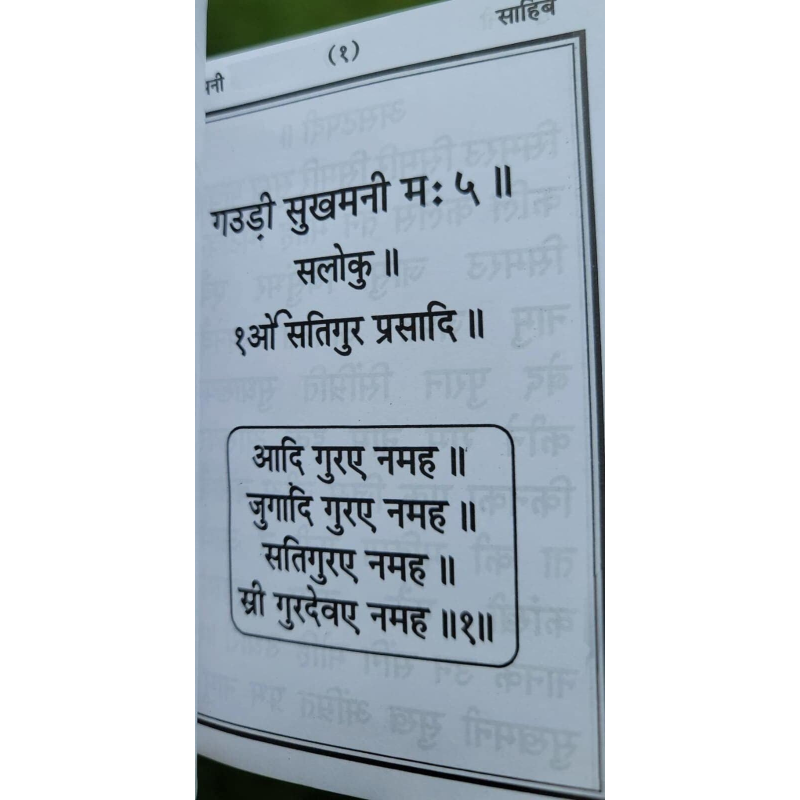 (१)
साहिब
गउड़ी सुखमनी मः ५ ॥
सलोकु ॥
१ओं सतिगुर प्रसादि ॥
आदि गुरए नमह ॥
जुगादि गुरए नमह ॥
सतिगुरए नमह ॥
स्री गुरदेवए नमह ॥१॥